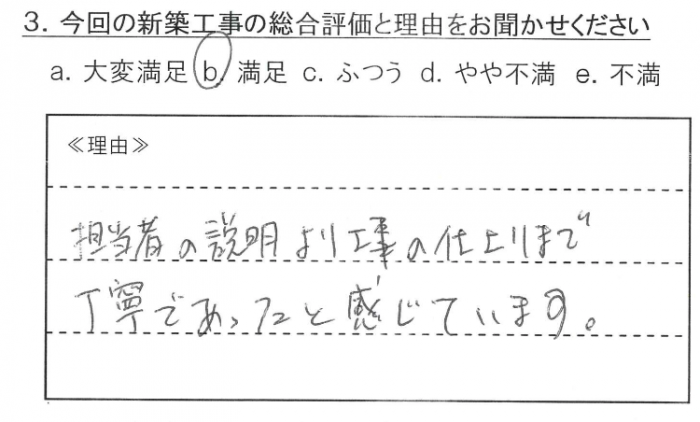 3. 今回の新築工事の総合評価と理由をお聞かせください
a. 大変満足 b. 満足 c. ふつう d. やや不満 e. 不満
≪理由≫
担当者の説明より工事の仕上りまで
丁寧であったと感じています。